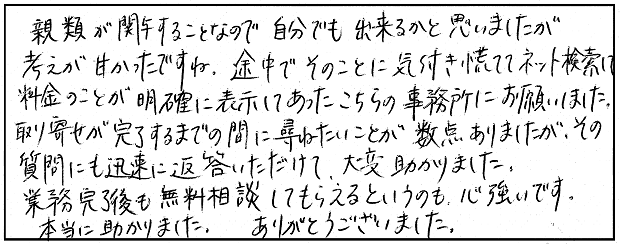 親類が関与することなので自分でも出来るかと思いましたが
考えが甘かったですね。途中でそのことに気付き慌ててネット検索して
料金のことが明確に表示してあったこちらの事務所にお願いしました。
取り寄せが完了するまでの間に尋ねたいことが数点ありましたが、その
質問にも迅速に返答いただけて、大変助かりました。
業務完了後も無料相談してもらえるというのも、心強いです。
本当に助かりました。ありがとうございました。